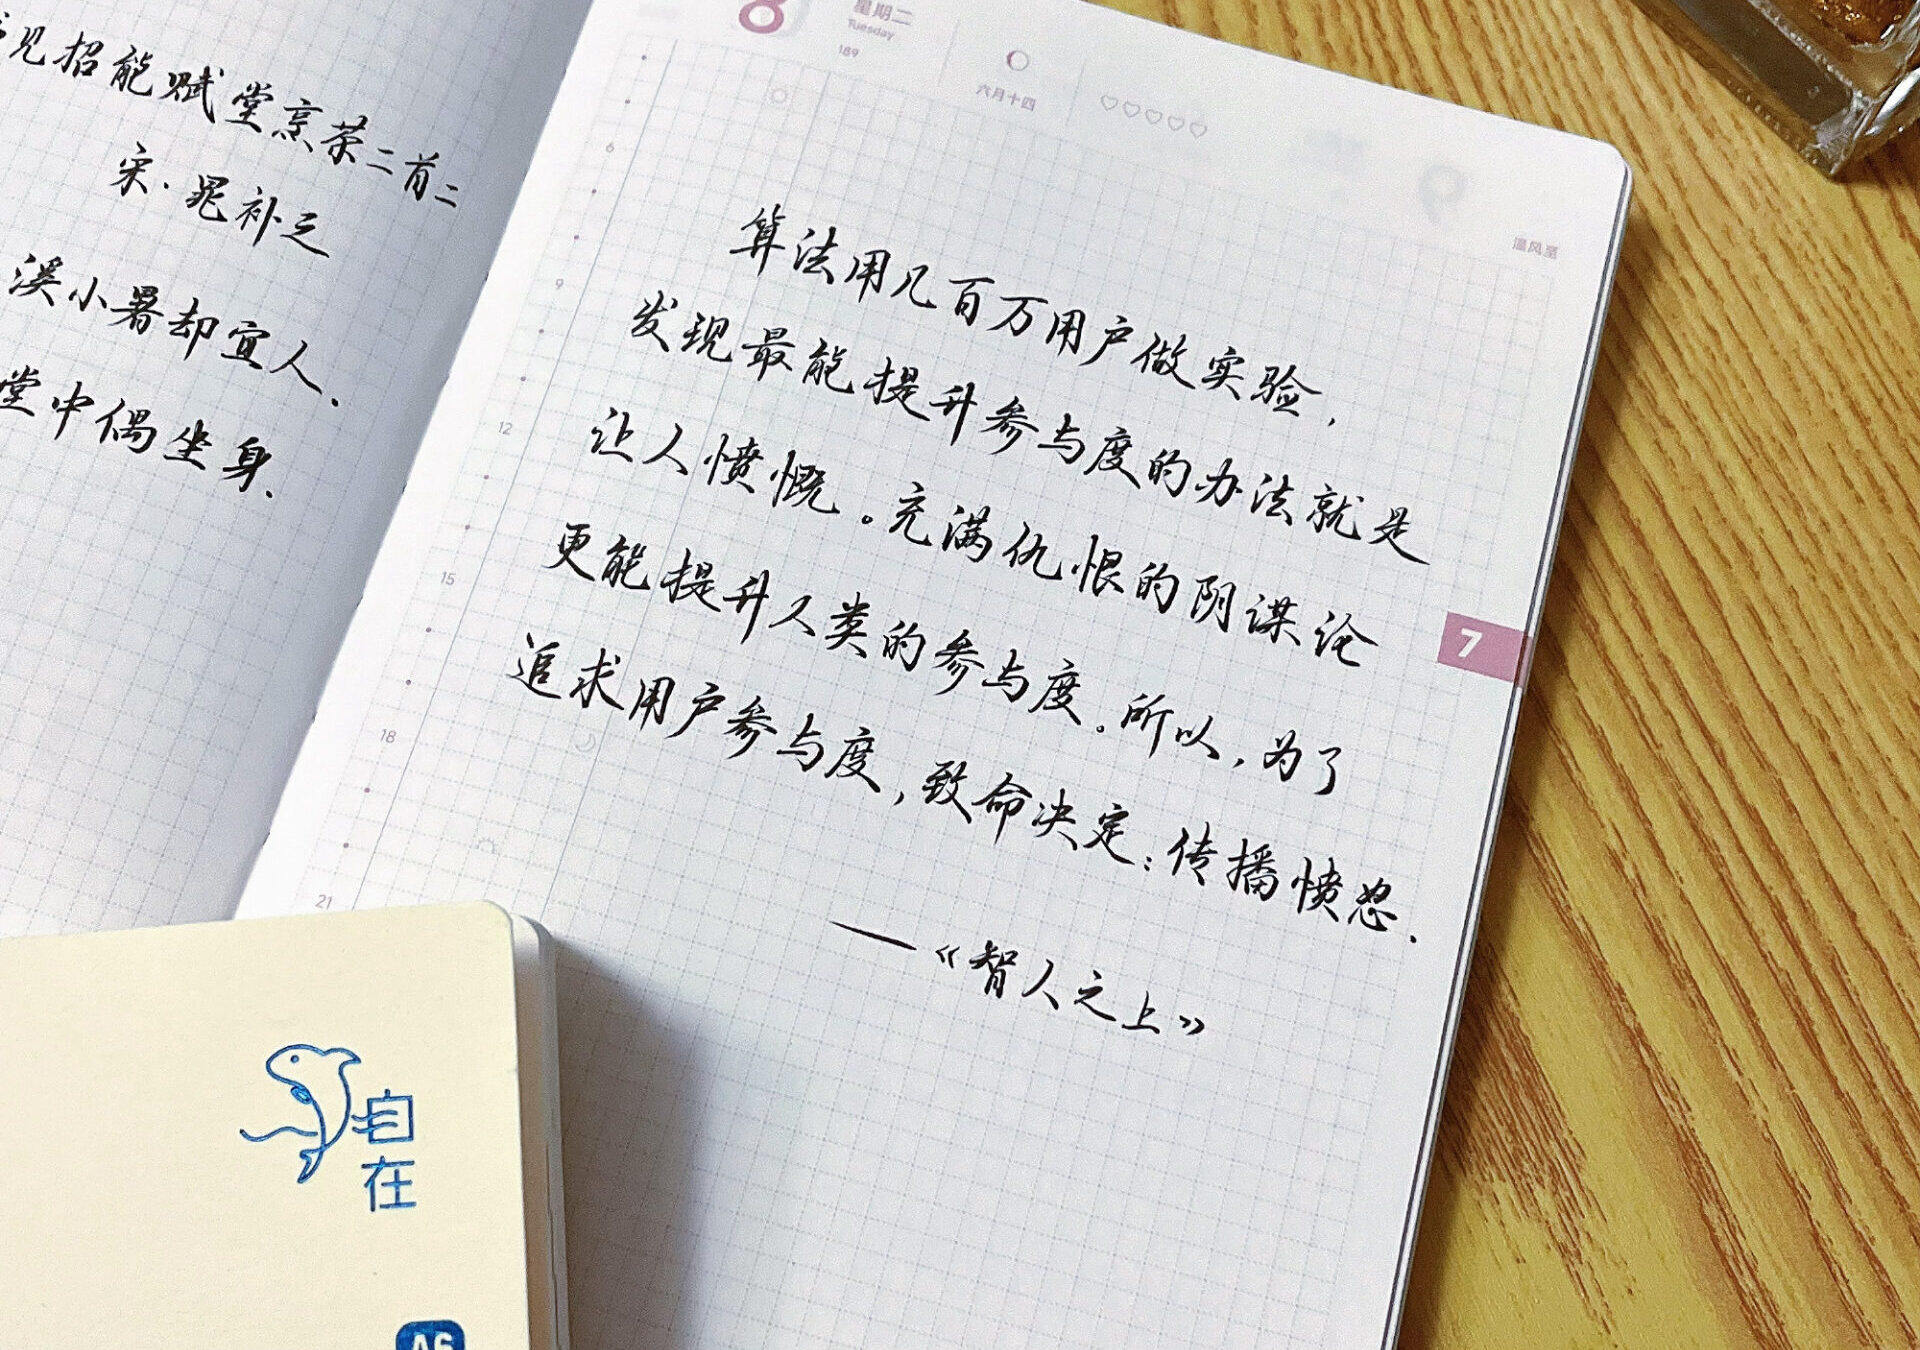 见招能赋堂烹茶二首二
宋.晁补之
溪小暑却宜人.
堂中偶坐身.
8
星期二
Tuesday
189
六月十四
温风至
6
9
12
15
18
21
算法用几百万用户做实验,
发现最能提升参与度的办法就是
让人愤慨。充满仇恨的阴谋论
更能提升人类的参与度.所以,为了
追求用户参与度,致命决定:传播愤怒.
——《智人之上》
7
自在
A6